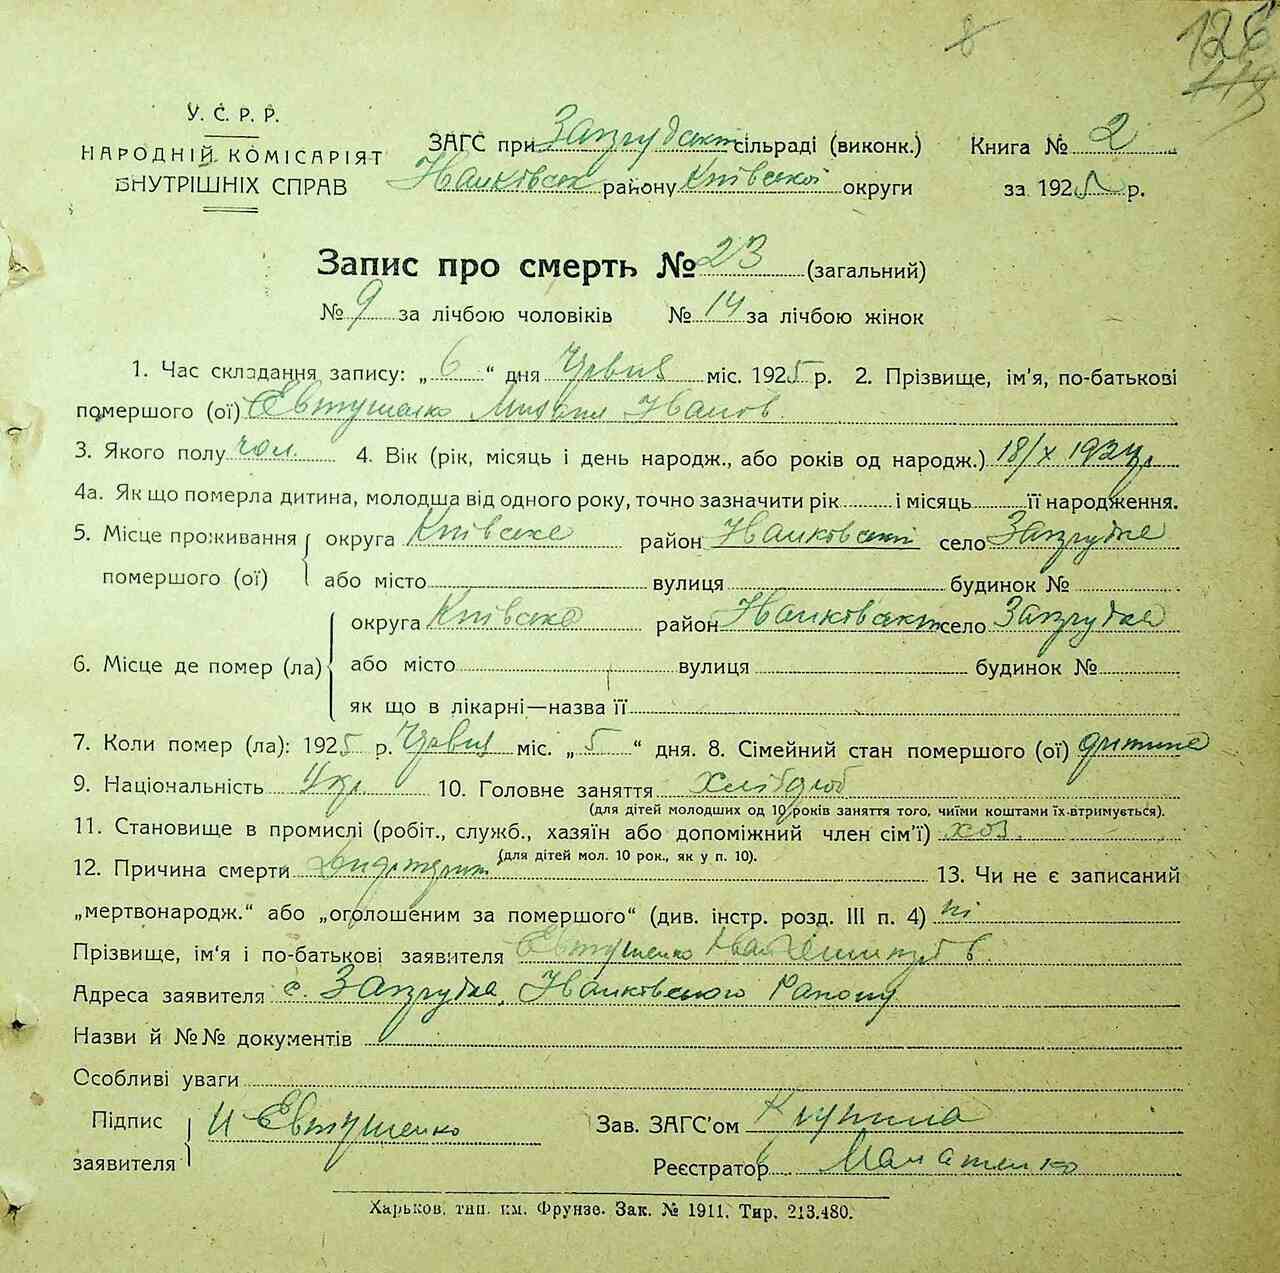 8
126
У. С. Р. Р.
НАРОДНІЙ КОМІСАРІЯТ
ВНУТРІШНІХ СПРАВ
ЗАГС при Загрудськ сільраді (виконк.) Книга № 2
району Київської округи за 1925 р.
Запис про смерть № 23 (загальний)
№ 9 за лічбою чоловіків № 14 за лічбою жінок
1. Час складання запису: „ 6 “ дня Червня міс. 1925 р. 2. Прізвище, ім'я, по-батькові
помершого (ої) Євтушенко Михайл Іванов.
3. Якого полу чол. 4. Вік (рік, місяць і день народж., або років од народж.) 18/X 1924 р
4а. Як що померла дитина, молодша від одного року, точно зазначити рік і місяць її народження.
5. Місце проживання округа Київське район село
помершого (ої) або місто вулиця будинок №
округа Київська район село
6. Місце де помер (ла) або місто вулиця будинок №
як що в лікарні—назва її
7. Коли помер (ла): 1925 р. Червня міс. „ 5 “ дня. 8. Сімейний стан помершого (ої) дитина
9. Національність Укр. 10. Головне заняття хлібороб
(для дітей молодших од 10 років заняття того, чиїми коштами їх втримується).
11. Становище в промислі (робіт., служб., хазяїн або допоміжний член сім'ї) хоз.
(для дітей мол. 10 рок., як у п. 10).
12. Причина смерти 13. Чи не є записаний
„мертвонародж.“ або „оголошеним за помершого“ (див. інстр. розд. III п. 4) ні
Прізвище, ім'я і по-батькові заявителя Євтушенко Іван
Адреса заявителя с. Району
Назви й №№ документів
Особливі уваги
Підпис И Євтушенко Зав. ЗАГС'ом
заявителя Реєстратор
Харьков, тип. им. Фрунзе. Зак. № 1911. Тир. 213.480.